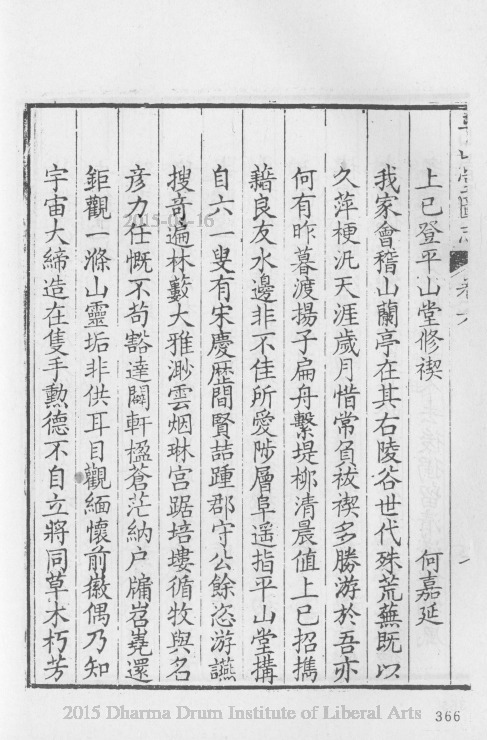 平山堂圖志 卷六
上巳登平山堂修禊 何嘉延
我家會稽山蘭亭在其右陵谷世代殊荒蕪既以
久萍梗汎天涯歲月惜常負祓禊多勝游於吾亦
何有昨暮渡揚子扁舟繫堤柳清晨值上巳招攜
藉良友水邊非不佳所愛陟層阜遥指平山堂搆
自六一叟有宋慶歷間賢喆踵郡守公餘恣游讌
搜竒遍林藪大雅渺雲烟琳宫踞培塿循牧與名
彦力任慨不茍豁達闢軒楹蒼茫納户牖岧嶤還
鉅觀一滌山靈垢非供耳目觀緬懷前徽偶乃知
宇宙大締造在隻手勲德不自立將同草木朽芳
2015-04-16
2015 Dharma Drum Institute of Liberal Arts 366